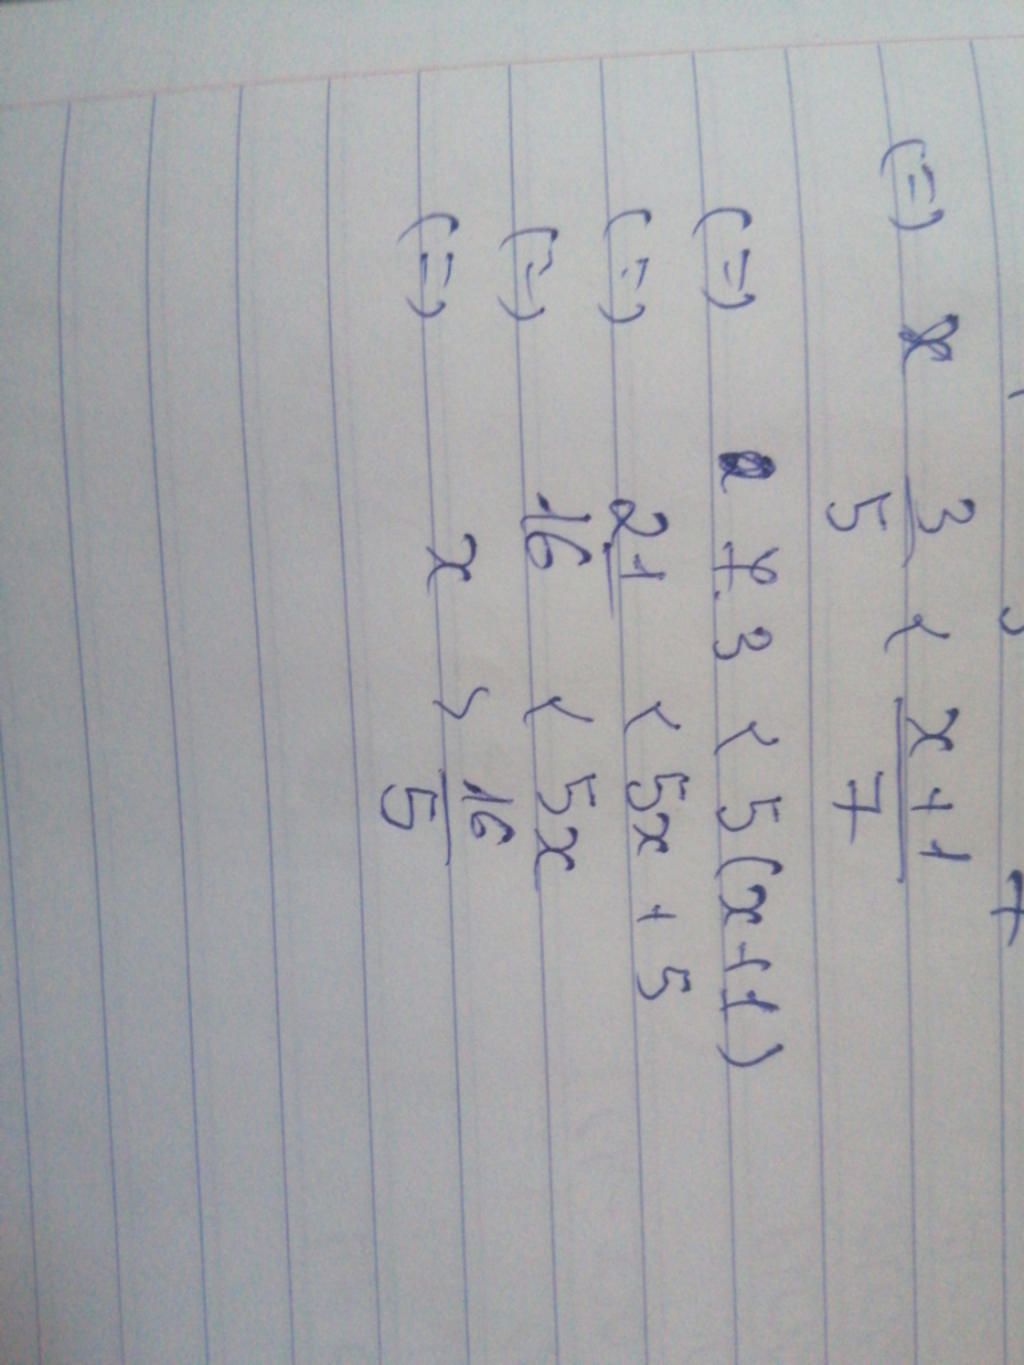 (=) 3/5 < x+1/7
(=) 7.3 < 5(x+1)
(=) 21 < 5x + 5
(=) 16 < 5x
(=) x > 16/5